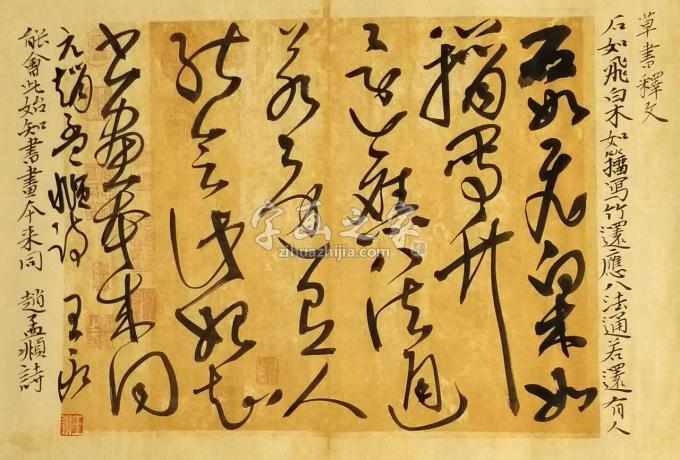 草書釋文
石如飛白木如籀寫竹還應八法通若還有人
石如飛白木如
籀寫竹
還應八法通
若還有人
能會此始知
書畫本來同
元趙孟頫詩 王
能會此始知書畫本来同 趙孟頫詩
字画之家
zihuazhijia.com